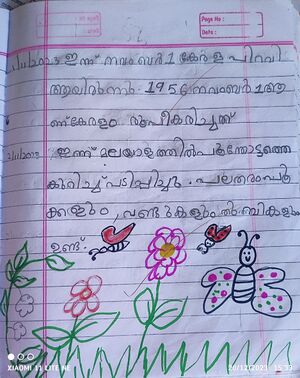 Page No :
Date :
1/11/2023 ഇന്ന് നവംബർ 1 കേരള പിറവി
ആയിരുന്നു. 1956 നവംബർ 1 ആ
ണ് കേരളം രൂപീകരിച്ചത്
ഇന്ന് മലയാളത്തിൽ പൂന്തോട്ടത്തെ
കുറിച്ച് പഠിപ്പിച്ചു. പലതരം പൂ
ക്കളും, വണ്ടുകളും തുമ്പികളും
ഉണ്ട്.
XIAOMI 11 LITE NE
20/12/2023 15:33